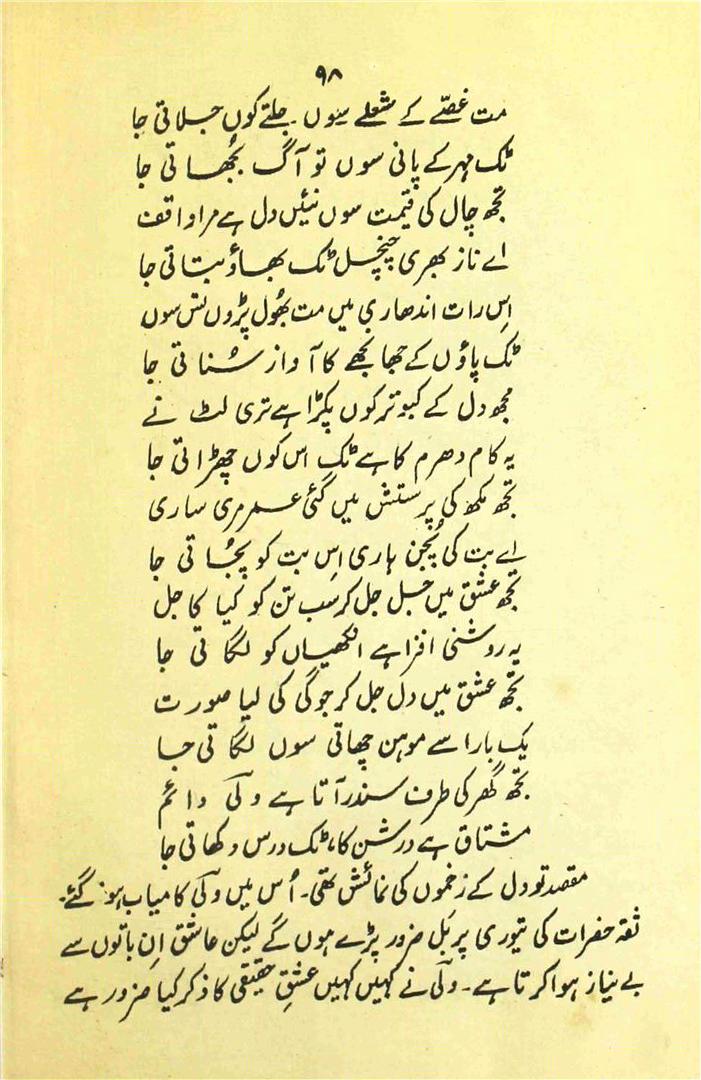 ۹۸
مت غصّے کے شعلے سوں جلتے کوں جلاتی جا
ٹک مہر کے پانی سوں تو آگ بُجھاتی جا
تجھ چال کی قیمت سوں نئیں دل ہے مرا واقف
اے ناز بھری چنچل ٹک بھاؤ بتاتی جا
اِس رات اندھاری میں مت بھُول پڑوں تس سوں
ٹک پاؤں کے جھانجھے کا آواز سُناتی جا
مجھ دل کے کبوتر کوں پکڑا ہے تری لٹ نے
یہ کام دھرم کا ہے ٹک اس کوں چھڑاتی جا
تجھ مکھ کی پرستش میں گئی عمر مری ساری
اے بت کی پُجن ہاری اِس بت کو پُجاتی جا
تجھ عشق میں جل جل کر سب تن کو کیا کاجل
یہ روشنی افزا ہے انکھیاں کو لگاتی جا
تجھ عشق میں دل جل کر جوگی کی لیا صورت
یک بار اسے موہن چھاتی سوں لگاتی جا
تجھ گھر کی طرف سندر آتا ہے ولیؔ دائم
مشتاق ہے درشن کا، ٹک درس دکھاتی جا
مقصد تو دل کے زخموں کی نمائش تھی۔ اُس میں ولیؔ کامیاب ہو گئے۔
ثقہ حضرات کی تیوری پر بَل ضرور پڑے ہوں گے لیکن عاشق اِن باتوں سے
بے نیاز ہوا کرتا ہے۔ ولیؔ نے کہیں کہیں عشقِ حقیقی کا ذکر کیا ضرور ہے